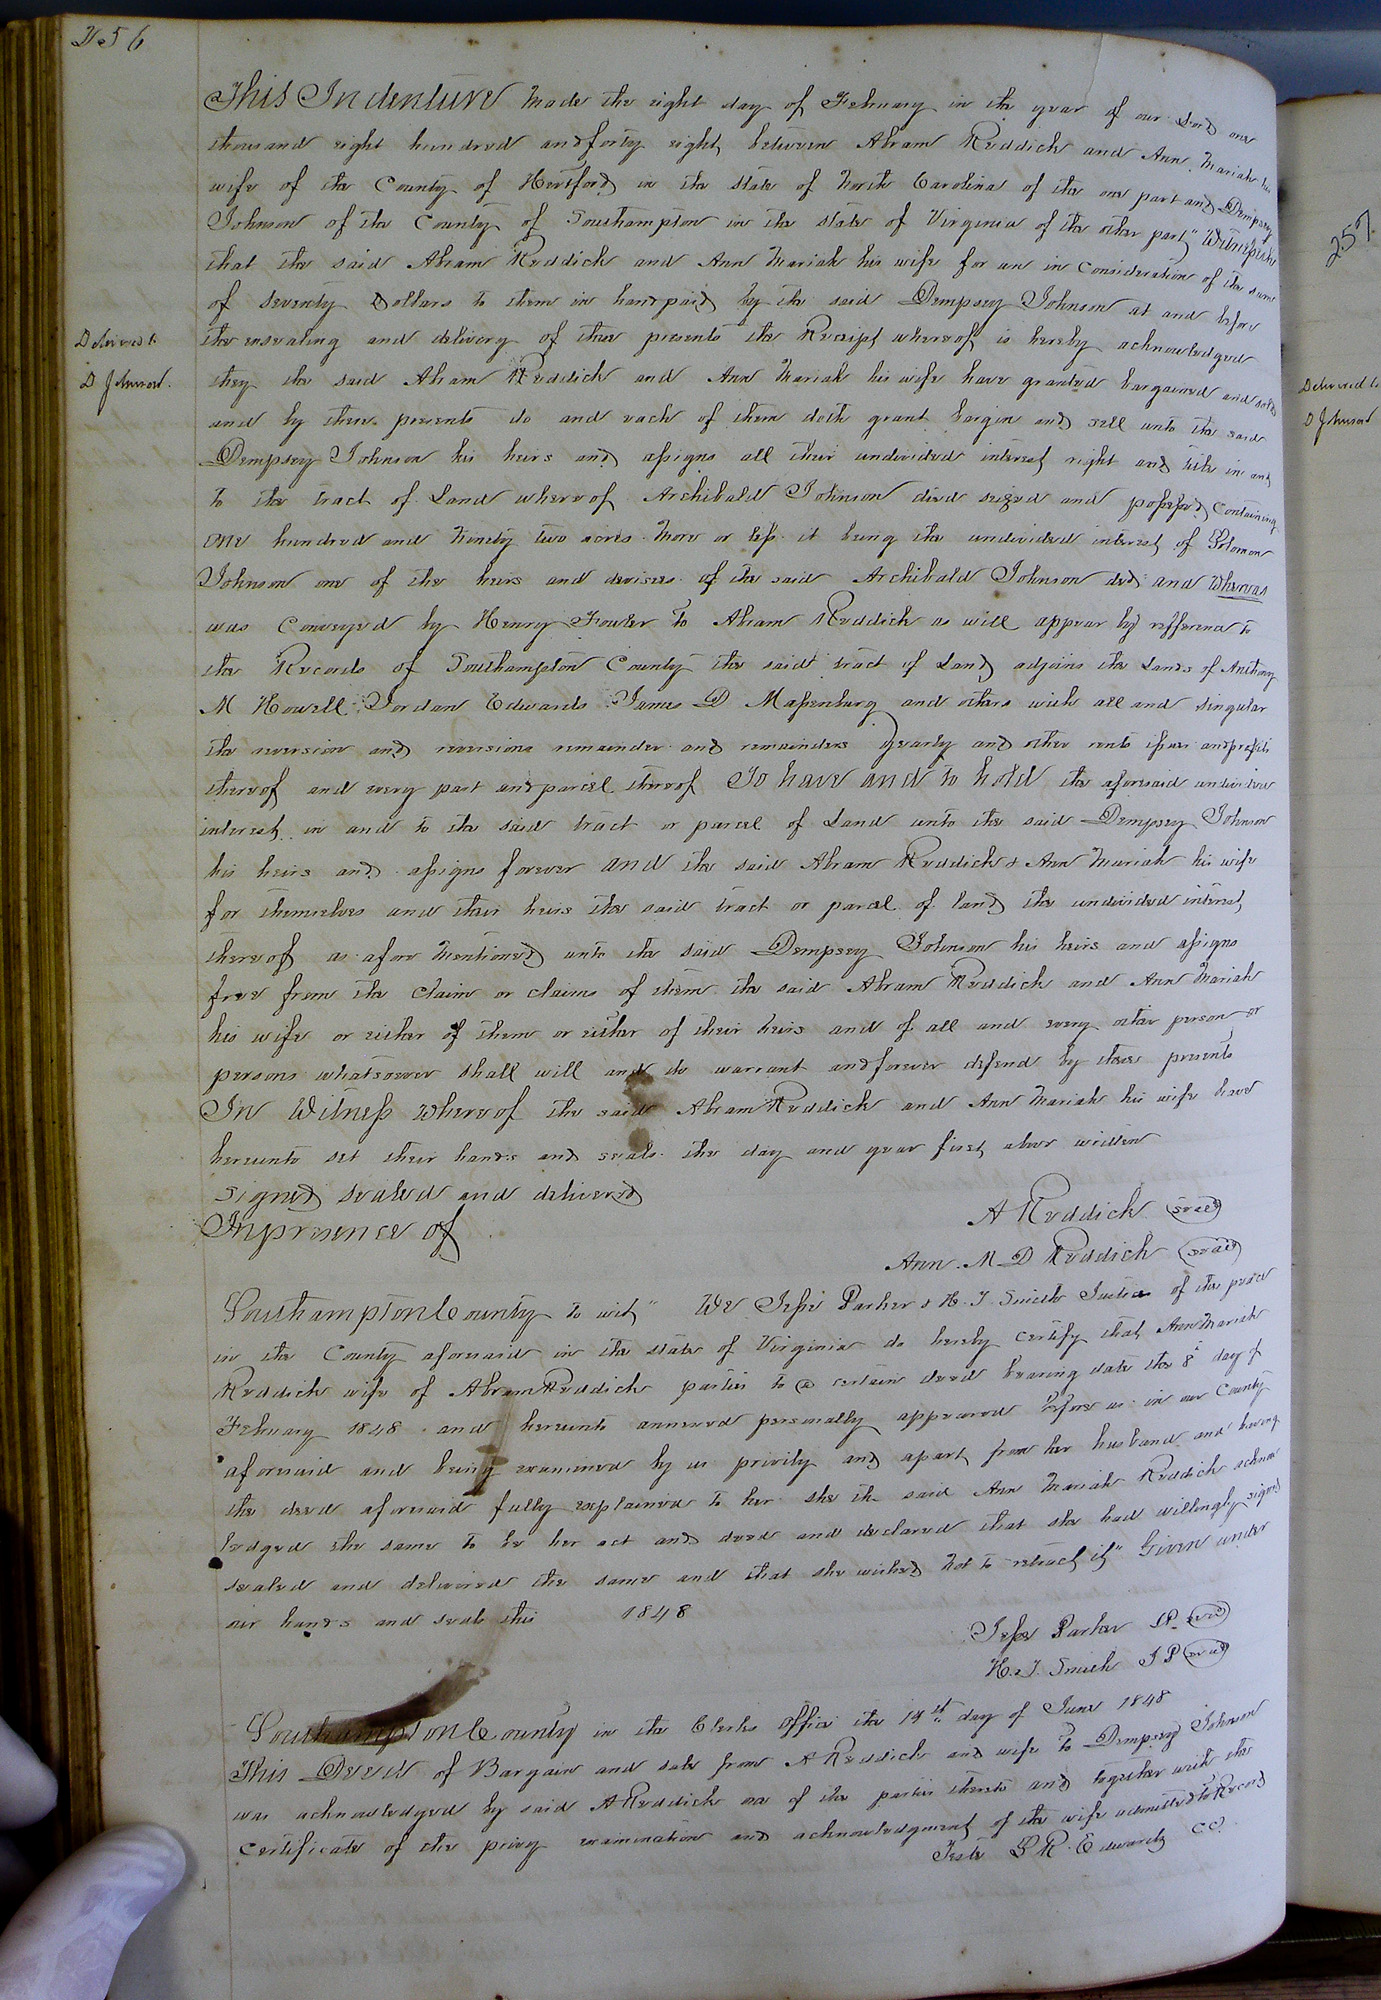 256
This Indenture made the eight day of February in the year of our Lord one
thousand eight hundred and forty eight between Abram Reddick and Ann Mariah his
wife of the County of Hertford in the State of North Carolina of the one part and Dempsey
Johnson of the County of Southampton in the state of Virginia of the other part," Witnesseth
that the said Abram Reddick and Ann Mariah his wife for an in Consideration of the sume
of seventy Dollars to them in hand paid by the said Dempsey Johnson at and before
the ensealing and delivery of these presents the Receipt whereof is hereby acknowledged
they the said Abram Reddick and Ann Mariah his wife have granted bargained and sold
and by these presents do and each of them doth grant bargin and sell unto the said
Dempsey Johnson his heirs and assigns all their undivided interest right and title in and
to the tract of Land whereof Archibald Johnson died seized and possessed Containing
one hundred and Ninety two acres more or less it being the undivided interest of Solomon
Johnson one of the heirs and devisees of the said Archibald Johnson decd and whereas
was Conveyed by Henry Fowler to Abram Reddick as will appear by refference to
the Records of Southampton County the said tract of Land adjoins the Lands of Anthony
M Howell Jordan Edwards James D Massenburg and others with all and singular
the reversion and reversions remainder and remainders yearly and other rents issues and profits
thereof and every part and parcel thereof To have and to hold the aforesaid undivided
interest in and to the said tract or parcel of Land unto the said Dempsey Johnson
his heirs and assigns forever and the said Abram Reddick & Ann Mariah his wife
for themselves and their heirs the said tract or parcel of land the undivided interest
thereof as afore mentioned unto the said Dempsey Johnson his heirs and assigns
free from the claim or claims of them the said Abram Reddick and Ann Mariah
his wife or either of them or either of their heirs and of all and every other person or
persons whatsoever shall will and do warrant and forever defend by these presents
In Witness whereof the said Abram Reddick and Ann Mariah his wife have
hereunto set their hands and seals the day and year first above written
Signed sealed and delivered
In presence of
A Reddick (seal)
Ann. M D Reddick (seal)
Delivered to
D Johnson.
Southampton County to wit" We Jesse Parker & H. J. Smith Justices of the peace
in the County aforesaid in the state of Virginia do hereby certify that Ann Mariah
Reddick wife of Abram Reddick parties to a certain deed bearing date the 8th day of
February 1848 and hereunto annexed personally appeared before us in our County
aforesaid and being examined by us privily and apart from her husband and having
the deed aforesaid fully explained to her she the said Ann Mariah Reddick acknow
ledged the same to be her act and deed and declared that she had willingly signed
sealed and delivered the same and that she wished not to retract it" Given under
our hands and seals this 1848
Jesse Parker JP. (seal)
H. J. Smith J P (seal)
Southampton County in the Clerks Office the 14th day of June 1848
This Deed of Bargain and sale from A Reddick and wife to Dempsey Johnson
was acknowledged by said A Reddick one of the parties thereto and together with the
Certificate of the privy examination and acknowledgment of the wife admitted to Record
Teste L R. Edwards CC
257
Delivered to
D Johnson